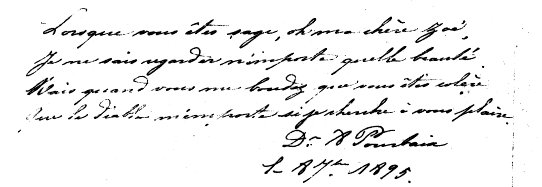 Lorsque vous êtes sage, oh ma chère Zoé,
Je ne sais regarder n'importe quelle beauté.
Mais quand vous me boudez que vous êtes colère
Que le diable m'emporte si je cherche à vous plaire.
Dr A
le 8 7bre 1895.